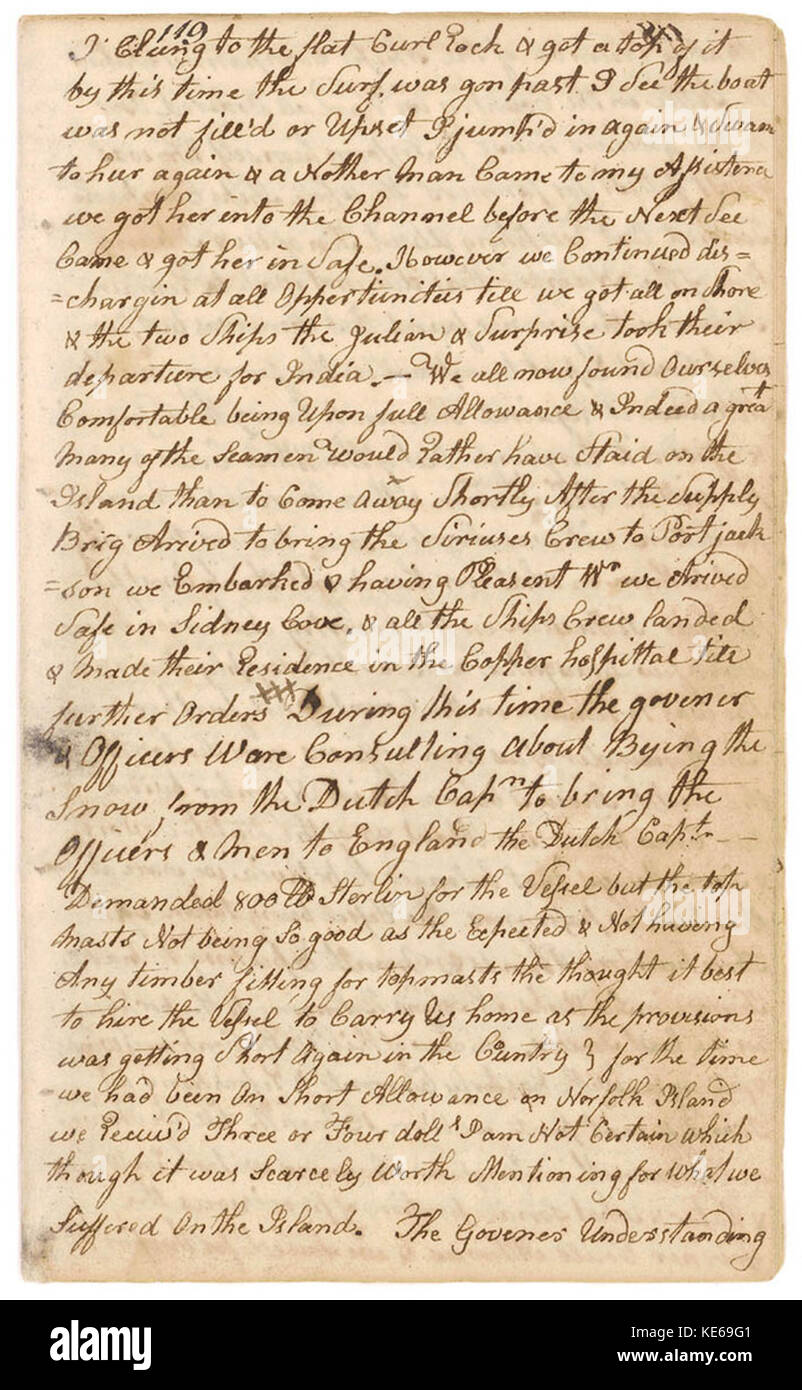 110
I Clung to the flat Curl Rock & got a top of it
by this time the Surf was gon past I See the boat
was not fill'd or Upset I jump'd in again & Swam
to hur again & a Nother Man Came to my Assistence
we got her into the Channel before the Next See
Came & got her in Safe. However we Continued dis=
=chargin at all Oppertunitus till we got all on Shore
& the two Ships the Julian & Surprise took their
departure for India. — We all now found Ourselves
Comfortable being Upon full Allowance & Indeed a great
Many of the Seamen would Rather have Staid on the
Island than to Come Away Shortly After the Supply
Brig Arived to bring the Siriuses Crew to Port jack
=son we Embarked & having Pleasent Wr we Arived
Safe in Sidney Cove, & all the Ships Crew landed
& Made their Residence in the Copper hospittal till
further Orders XXX During this time the govener
& Officers Ware Consulting About Bying the
Snow from the Dutch Capn to bring the
Officers & Men to England the Dutch Captn —
Demanded 800 lb Sterlin for the Vessel but the top
Masts Not being So good as the Expected & Not having
Any timber fitting for topmasts the thought it best
to hire the Vessel to Carry Us home as the provisions
was getting Short Again in the Cuntry } for the time
we had been On Short Allowance on Norfolk Island
we Reciev'd Three or Four dolls I am Not Certain which
though it was Scarcely Worth Mentioning for what we
Suffered On the Island. The Govener Understanding
alamy
Image ID: KE69G1
www.alamy.com